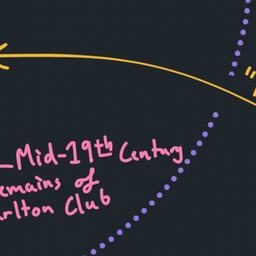 Mid-19th Century
emains of
arlton Club